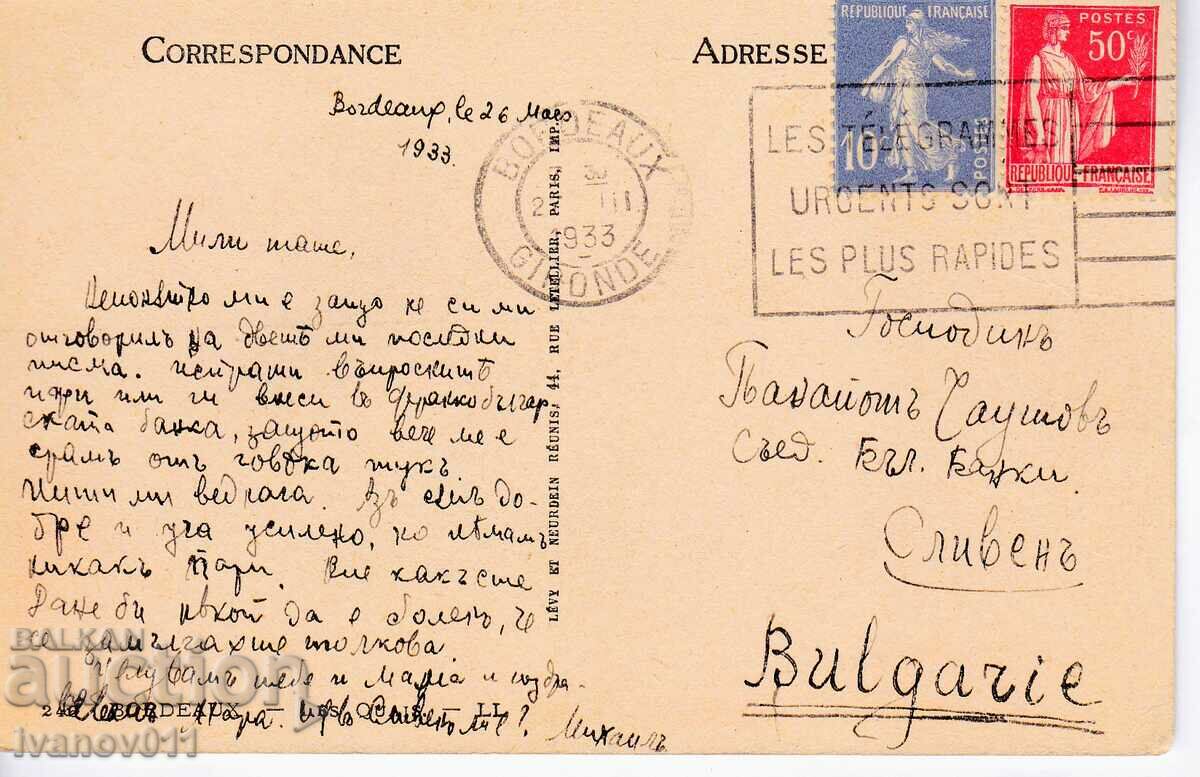 CORRESPONDANCE
ADRESSE
RÉPUBLIQUE FRANÇAISE
10c
POSTES
POSTES
50c
RÉPUBLIQUE FRANÇAISE
BORDEAUX
GIRONDE
1933
LES TÉLÉGRAMMES
URGENTS SONT
LES PLUS RAPIDES
Bordeaux, le 26 Mars
1933.
Мили тате,
ми е защо не си ми
отговорилъ на дветѣ ми последни
писма. Изпрати въпроснитѣ
пари или ги внеси въ франкобългар
ската банка, защото вече ме е
срамъ отъ човѣка тукъ
Пиши ми веднага. Азъ съмъ до-
бре и уча усилено, но нѣмамъ
никакъ пари. Вие какъ сте
Да не би някой да е боленъ, че
се замълчахте толкова.
Целувамъ тебе и мама и поздра-
Михаилъ
LÉVY ET NEURDEIN RÉUNIS, 44, RUE LETELLIER, PARIS, IMP.
Господинъ
Панайотъ Чаушовъ
Съед. Бъл. Банки
Сливенъ
Bulgarie
BORDEAUX — LES QUAIS — LL
BALKAN
auction
ivanov011